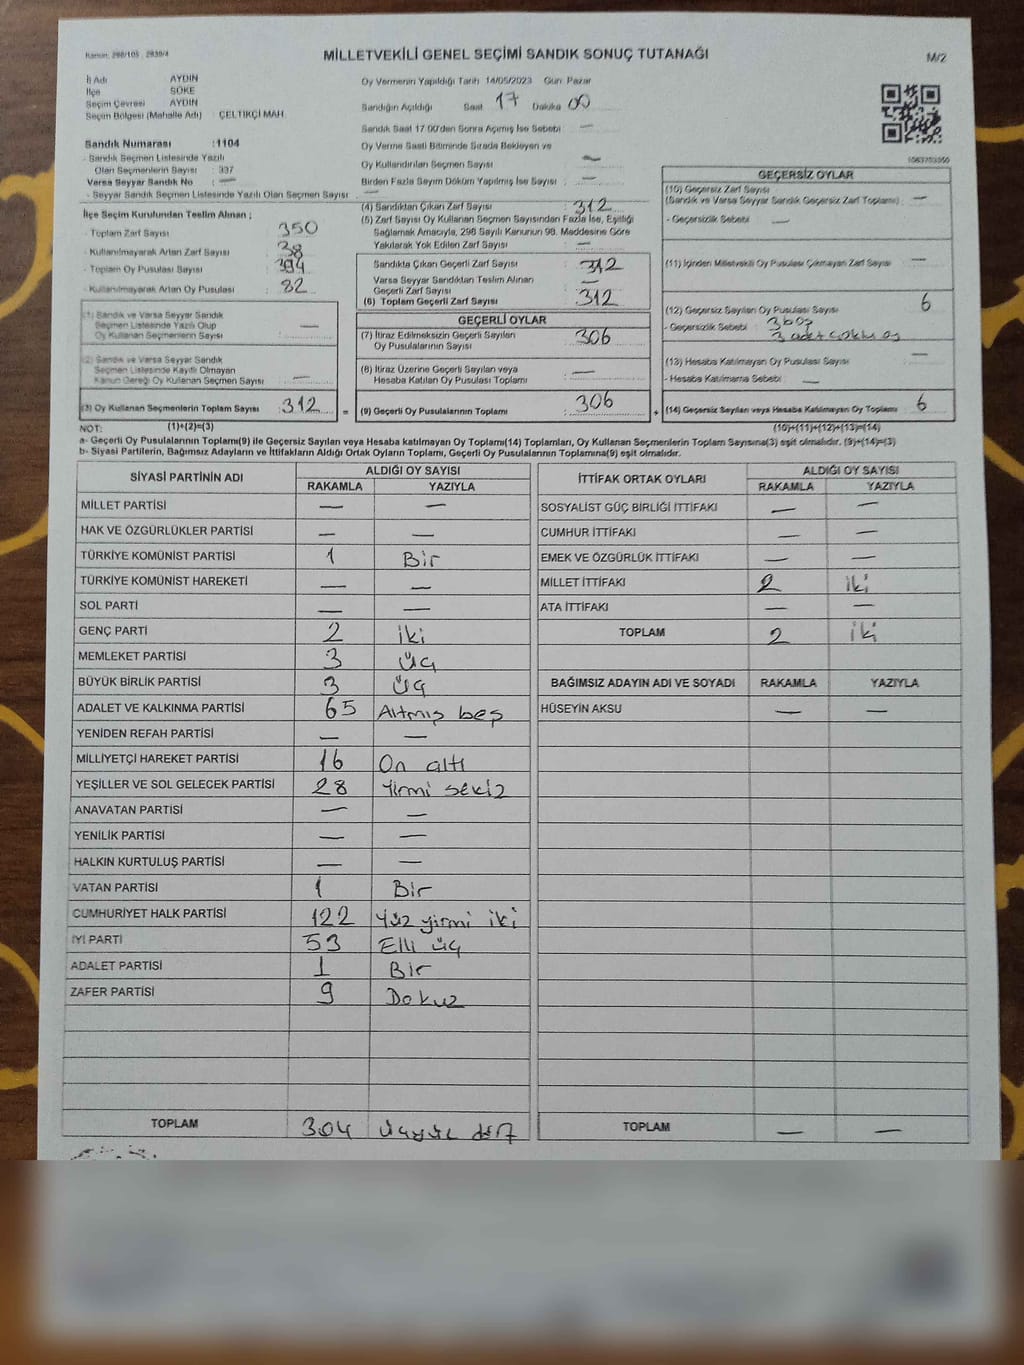 Kanun: 298/105 , 2839/4
MİLLETVEKİLİ GENEL SEÇİMİ SANDIK SONUÇ TUTANAĞI
M/2
İl Adı AYDIN
İlçe SÖKE
Seçim Çevresi AYDIN
Seçim Bölgesi (Mahalle Adı) : ÇELTİKÇİ MAH.
Sandık Numarası :1104
- Sandık Seçmen Listesinde Yazılı
Olan Seçmenlerin Sayısı : 337
Varsa Seyyar Sandık No : —
- Seyyar Sandık Seçmen Listesinde Yazılı Olan Seçmen Sayısı : —
Oy Vermenin Yapıldığı Tarih 14/05/2023 Gün: Pazar
Sandığın Açıldığı Saat 17 Dakika 00
Sandık Saat 17:00'den Sonra Açılmış İse Sebebi : —
Oy Verme Saati Bitiminde Sırada Bekleyen ve
Oy Kullandırılan Seçmen Sayısı : —
Birden Fazla Sayım Döküm Yapılmış İse Sayısı : —
İlçe Seçim Kurulundan Teslim Alınan ;
- Toplam Zarf Sayısı : 350
- Kullanılmayarak Artan Zarf Sayısı : 38
- Toplam Oy Pusulası Sayısı : 394
- Kullanılmayarak Artan Oy Pusulası : 82
(1) Sandık ve Varsa Seyyar Sandık
Seçmen Listesinde Yazılı Olup
Oy Kullanan Seçmenlerin Sayısı : —
(2) Sandık ve Varsa Seyyar Sandık
Seçmen Listesinde Kayıtlı Olmayan
Kanun Gereği Oy Kullanan Seçmen Sayısı : —
(3) Oy Kullanan Seçmenlerin Toplam Sayısı : 312
(4) Sandıktan Çıkan Zarf Sayısı : 312
(5) Zarf Sayısı Oy Kullanan Seçmen Sayısından Fazla İse, Eşitliği
Sağlamak Amacıyla, 298 Sayılı Kanunun 98. Maddesine Göre
Yakılarak Yok Edilen Zarf Sayısı : —
Sandıkta Çıkan Geçerli Zarf Sayısı : 312
Varsa Seyyar Sandıktan Teslim Alınan
Geçerli Zarf Sayısı : —
(6) Toplam Geçerli Zarf Sayısı : 312
GEÇERLİ OYLAR
(7) İtiraz Edilmeksizin Geçerli Sayılan
Oy Pusulalarının Sayısı : 306
(8) İtiraz Üzerine Geçerli Sayılan veya
Hesaba Katılan Oy Pusulası Toplamı : —
= (9) Geçerli Oy Pusulalarının Toplamı : 306
GEÇERSİZ OYLAR
(10) Geçersiz Zarf Sayısı
(Sandık ve Varsa Seyyar Sandık Geçersiz Zarf Toplamı) : —
- Geçersizlik Sebebi : —
(11) İçinden Milletvekili Oy Pusulası Çıkmayan Zarf Sayısı : —
(12) Geçersiz Sayılan Oy Pusulası Sayısı : 6
- Geçersizlik Sebebi : 3 boş
3 adet çoklu oy
(13) Hesaba Katılmayan Oy Pusulası Sayısı : —
- Hesaba Katılmama Sebebi : —
+ (14) Geçersiz Sayılan veya Hesaba Katılmayan Oy Toplamı : 6
NOT: (1)+(2)=(3) (10)+(11)+(12)+(13)=(14)
a- Geçerli Oy Pusulalarının Toplamı(9) ile Geçersiz Sayılan veya Hesaba katılmayan Oy Toplamı(14) Toplamları, Oy Kullanan Seçmenlerin Toplam Sayısına(3) eşit olmalıdır. (9)+(14)=(3)
b- Siyasi Partilerin, Bağımsız Adayların ve İttifakların Aldığı Ortak Oyların Toplamı, Geçerli Oy Pusulalarının Toplamına(9) eşit olmalıdır.
SİYASİ PARTİNİN ADI ALDIĞI OY SAYISI
RAKAMLA YAZIYLA
MİLLET PARTİSİ — —
HAK VE ÖZGÜRLÜKLER PARTİSİ — —
TÜRKİYE KOMÜNİST PARTİSİ 1 Bir
TÜRKİYE KOMÜNİST HAREKETİ — —
SOL PARTİ — —
GENÇ PARTİ 2 iki
MEMLEKET PARTİSİ 3 üç
BÜYÜK BİRLİK PARTİSİ 3 üç
ADALET VE KALKINMA PARTİSİ 65 Altmış beş
YENİDEN REFAH PARTİSİ — —
MİLLİYETÇİ HAREKET PARTİSİ 16 On altı
YEŞİLLER VE SOL GELECEK PARTİSİ 28 Yirmi sekiz
ANAVATAN PARTİSİ — —
YENİLİK PARTİSİ — —
HALKIN KURTULUŞ PARTİSİ — —
VATAN PARTİSİ 1 Bir
CUMHURİYET HALK PARTİSİ 122 Yüz yirmi iki
İYİ PARTİ 53 Elli üç
ADALET PARTİSİ 1 Bir
ZAFER PARTİSİ 9 Dokuz
TOPLAM 304 üçyüz dört
İTTİFAK ORTAK OYLARI ALDIĞI OY SAYISI
RAKAMLA YAZIYLA
SOSYALİST GÜÇ BİRLİĞİ İTTİFAKI — —
CUMHUR İTTİFAKI — —
EMEK VE ÖZGÜRLÜK İTTİFAKI — —
MİLLET İTTİFAKI 2 iki
ATA İTTİFAKI — —
TOPLAM 2 iki
BAĞIMSIZ ADAYIN ADI VE SOYADI RAKAMLA YAZIYLA
HÜSEYİN AKSU — —
TOPLAM — —